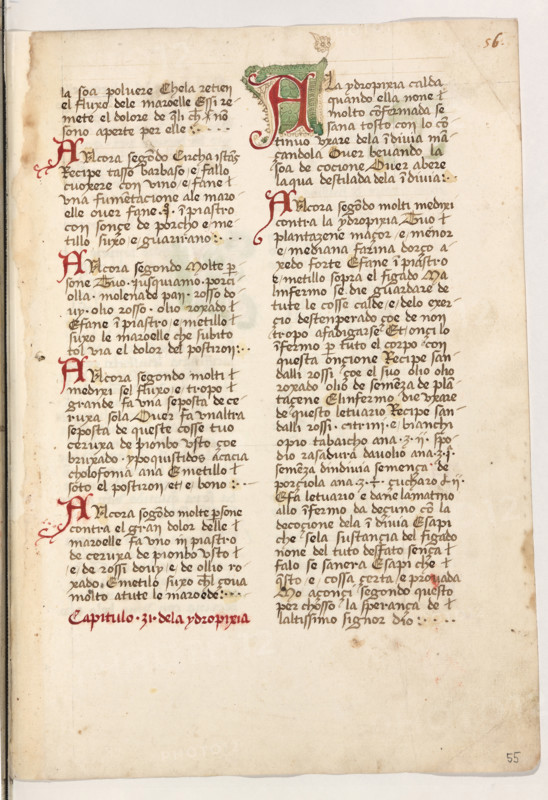 56.
la soa poluere Chela retien
el fluxo dele maroelle Essi re-
mete el dolore de
sono aperte per elle :· · · ·
Ancora segōdo Circha
Recipe tasso barbaso · e · fallo
cuoxere con vino · e · fane ł
vna fumetacione ale maro-
elle ouer fane · ī piastro
con sonçe de porcho e me-
tillo suxo e guarirano :· · · ·
Ancora segondo Molte p̄
sone Tuo · Jusquiamo · porci
olla · molena de pan · rosso do
uy · olio rosso · olio roxado ł
Efane ī piastro / e metillo ł
suxo le maroelle che subito
tol via el dolor del postiron :·
Ancora segondo molti ł
medixi sel fluxo / e tropo ł
grande fa vna seposta de ce-
ruxa sola Ouer fa vnaltra
seposta de queste cosse tuo
ceruxa de pionbo vsto çoe
bruxado · ypoquistidos acacia
cholofomia ana Emetillo ł
soto el postiron et e bono :· · ·
Ancora sogōdo molte p̄sone
contra el gran dolor delle ł
maroelle fa vno in piastro
de ceruxa de pionbo vsto ł
· e · de rossi douy · e · de ollio ro
xado · Emetilo suxo çoua
molto atute le maroede :· · ·
Capitulo · 31 · dela ydropixia
A La ydropixia calda
quando ella none ł
molto cōfermada se
sana tosto con lo cō-
tinuo vxare dela īdiuia mā-
gandola Ouer beuando la
soa de cocione Ouer abere
laqua destilada dela īdiuia :·
Ancora segōdo molti medixi
contra la ydropixia Tuo ł
plantaxene maçor · e · menor
e mediana farina dorço a-
xedo forte Efane ī piastro
e metillo sopra el figado Ma
linfermo se die guardare de
tute le cosse calde / e / delo exer-
çio destenperado çoe de non
tropo afadigarse Et onçi lo
īfermo p̄ tuto el corpo · con
questa onçione Recipe san-
dalli rossi çoe el suo olio olio
roxado olio de semēza de plā-
taçene Elinfermo die vxare
de questo letuario Recipe san-
dalli rossi · citrini · e bianchi
opio tabaicho ana · 3 · ii · spo
dio rasadura dauolio ana · 3 · j ·
semēza dindiuia semença de
porçiola ana · 3 · · çucharo
Efa letuario e dane lamatino
allo īfermo da deçuno cō la
decoçione dela ī diuia Esapi
che sela sustancia del figado
none del tuto desfato sença ł
falo se sanera Esapi che ł
q̄sto · e · cossa çerta · e prouada
Mo açonçi segondo questo
per chosso la sperança de ł
laltissimo signor dio :· · · ·
55